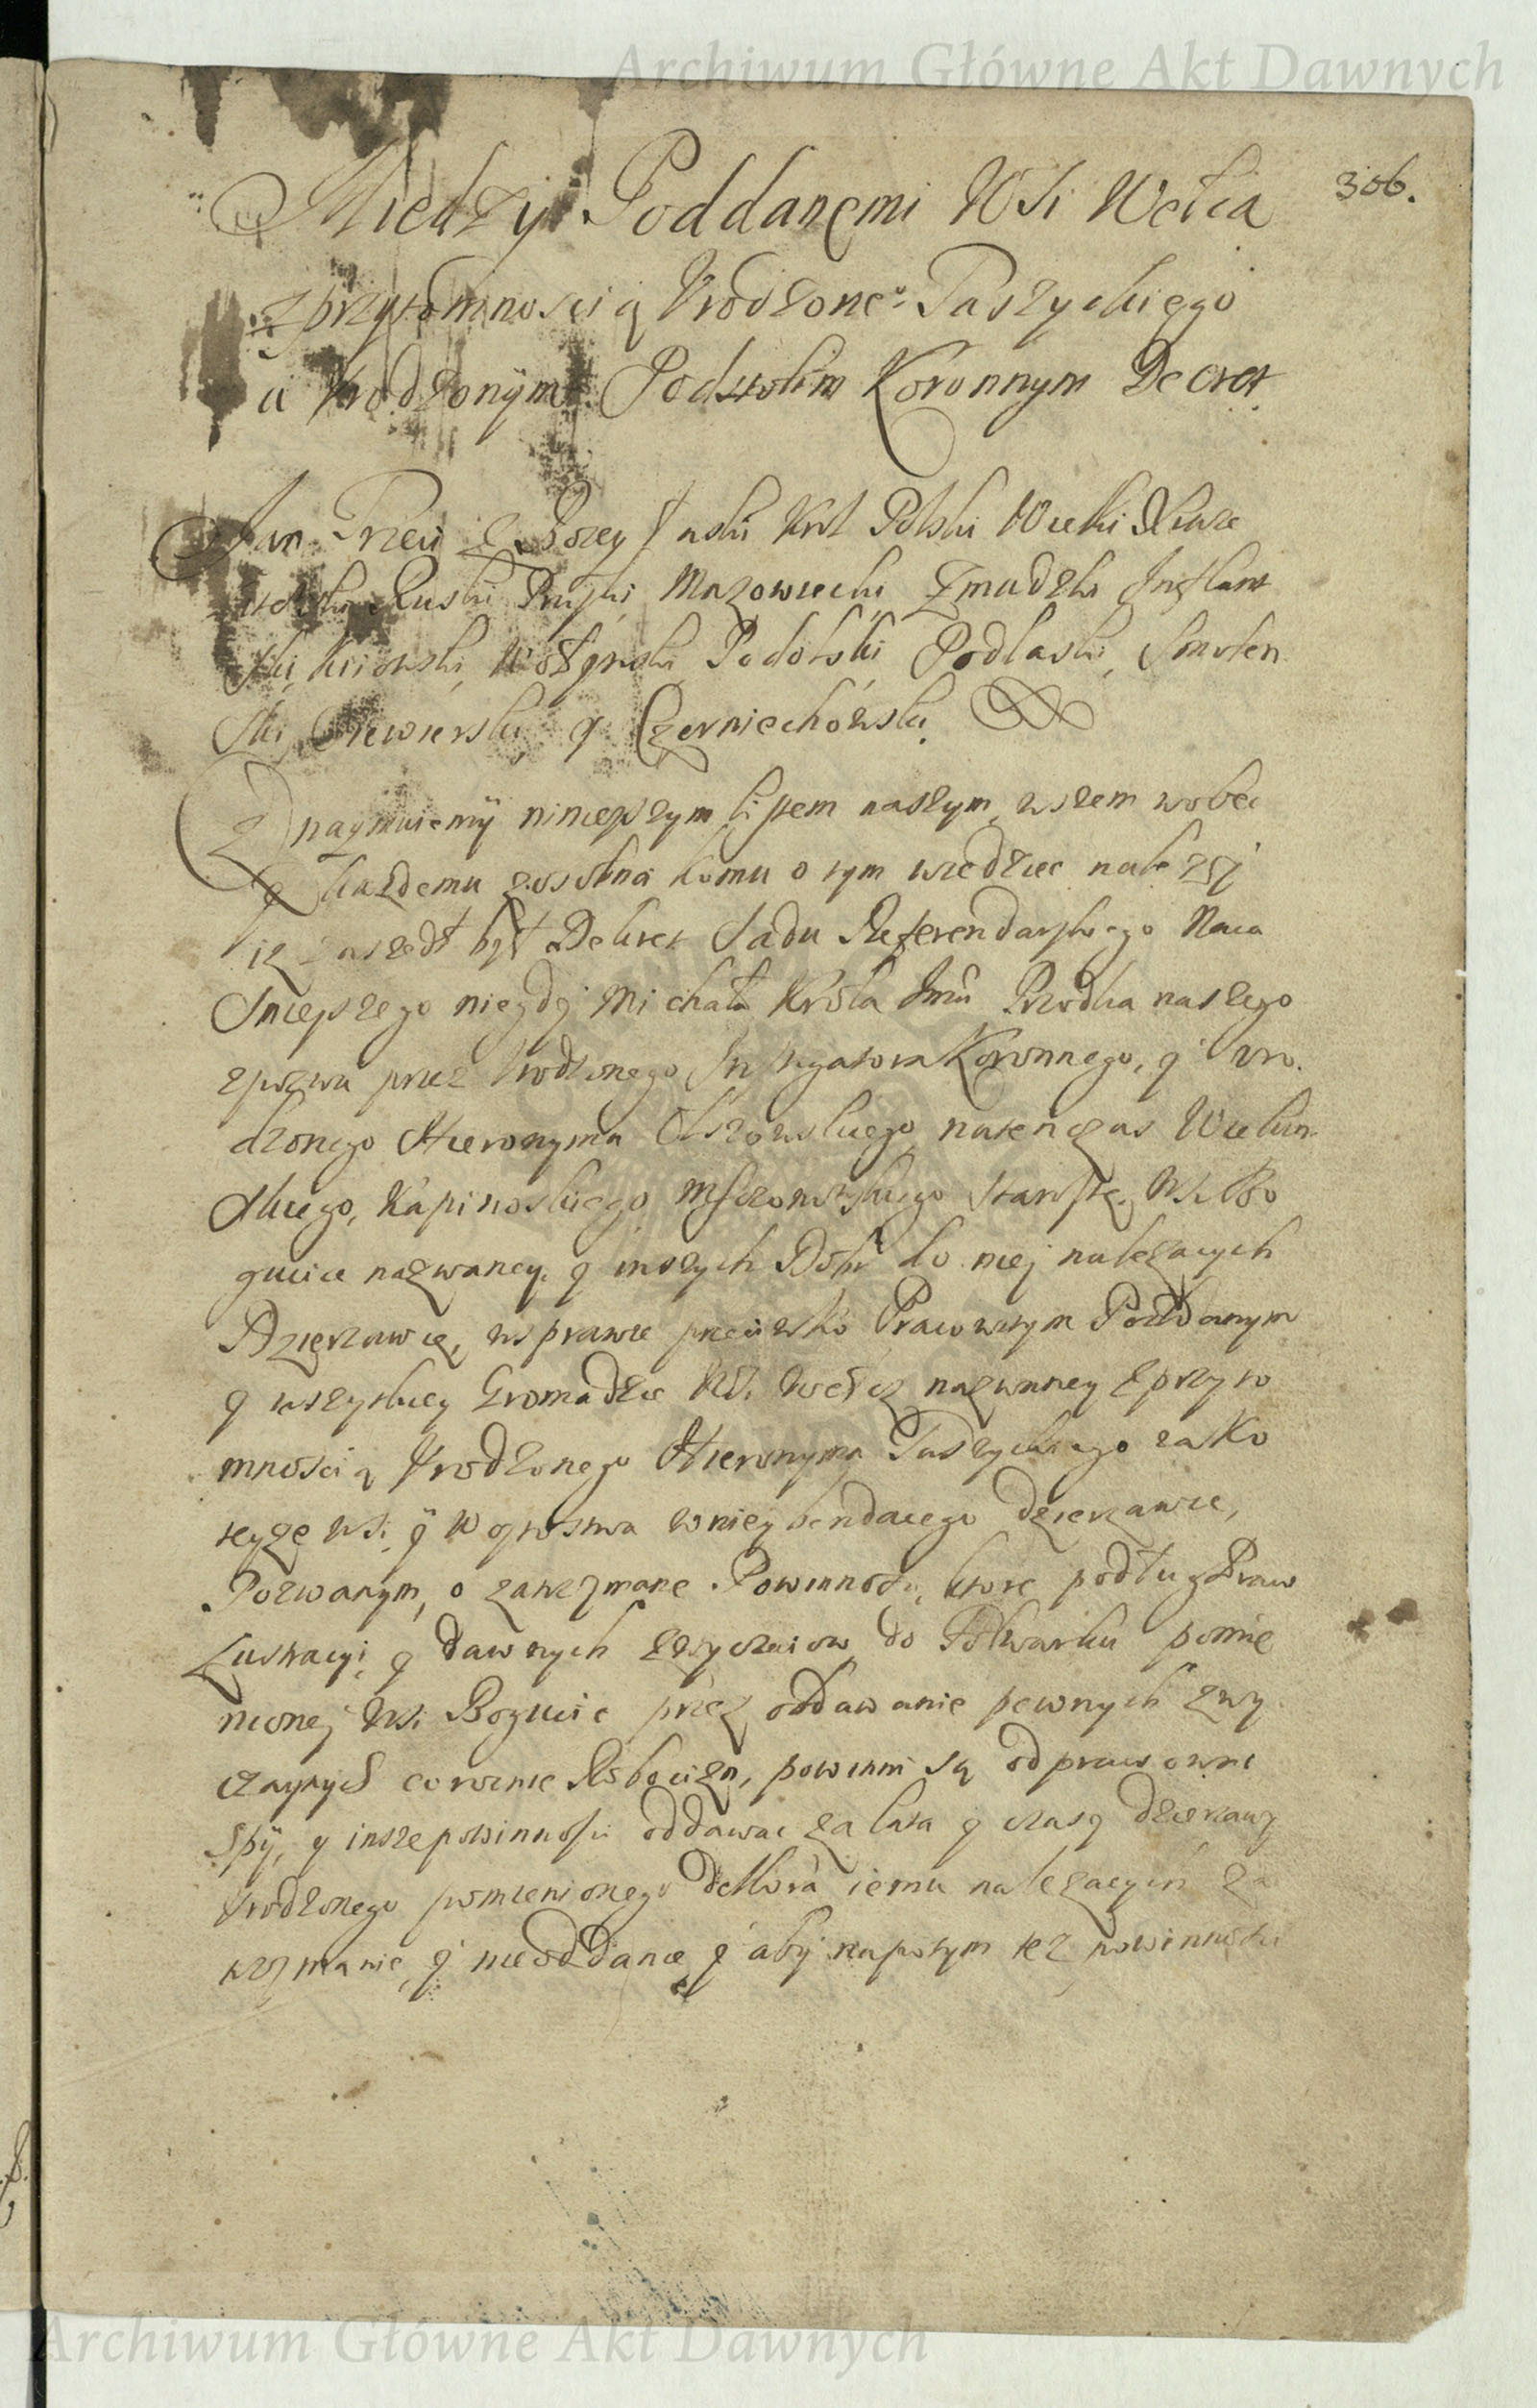 Archiwum Główne Akt Dawnych
306.
Miedzy Poddanemi Wsi Wełcza
z przytomnoscią Vrodzone⁰ Taszyckiego
a Vrodzonÿm Podstolim Koronnym Decret
Jan Trzeci z Bozey Łaski Krol Polski Wielki Xiąze
Litewski Ruski Pruski Mazowiecki Zmudzki Inflant
ski, Kiiowski, Wołynski, Podolski, Podlaski, Smolen
ski, Siewierski, y Czerniechówski.
Znaymuiemÿ ninieyszym listem naszym, wszem wobec
y kazdemu zosobna komu o tym wiedziec nalezy
iz zaszedł był Dekret Sadu Referendarskiego Naia
snieyszego niegdy Michała Krola Jmci Przodka naszego
zpozwu przez Vrodzonego Instigatora Koronnego, y Vro
dzonego Hieronyma Olszowskiego, natenczas Wielun
skiego, Kapinoskiego, Mszczonowskiego Starostę, Wsi Bo
gucice nazwaney, y inszych Dobr do niej nalezących
Dzierzawcę, wsprawie przeciwko Pracowitym Poddanym
y wszytkiey Gromadzie Wsi Wełcz nazwaney zprzyto
mnoscią Vrodzonego Hieronyma Taszyckiego iako
teyze Wsi, ÿ Woytostwa wniey bendącego dzierzawce,
Pozwanym, o zatrzymane Powinnosci, ktore podług Praw
Lustracyi, y dawnych zwyczaiow, do Folwarku pomie
nionej Wsi Bogucic przez oddawanie pewnych zwy
czaynych corocznie Robocizn, powinni są odprawowac
Spÿ, y insze powinnosci oddawac za lata y czasy dzierzawy
Vrodzonego pomienionego Aktora iemu nalezących za
trzymanie, y nieoddanie y aby napotym tez powinnosci
Archiwum Główne Akt Dawnych